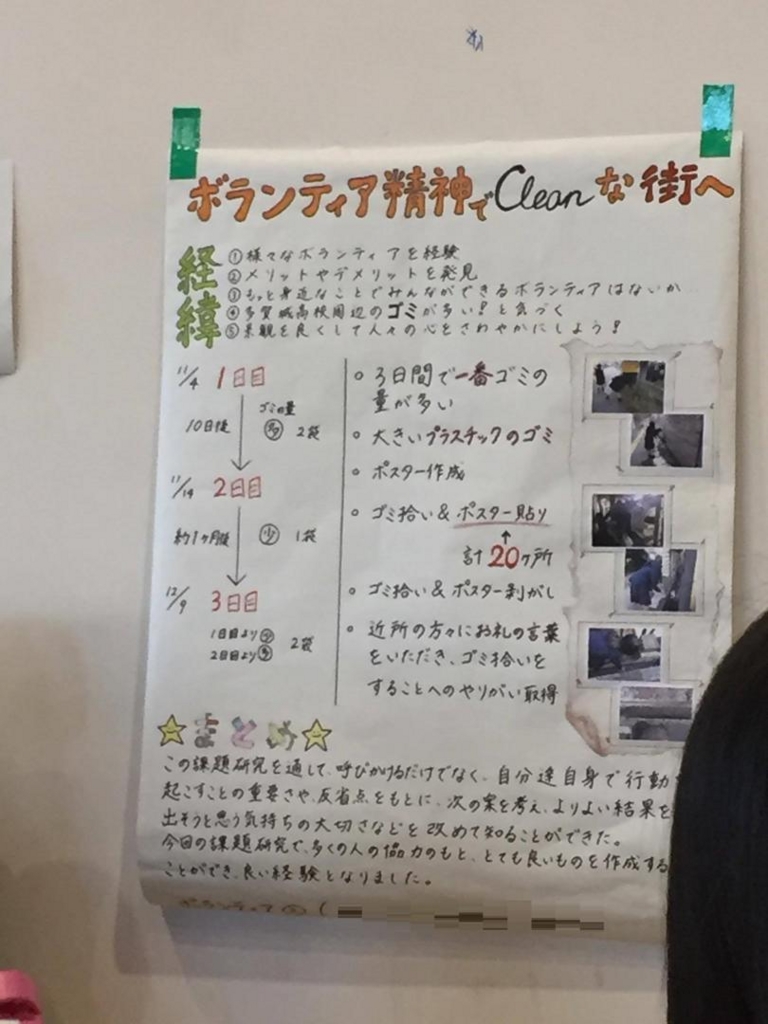 ボランティア精神でCleanな街へ
経緯
①様々なボランティアを経験
②メリットやデメリットを発見
③もっと身近なことでみんなができるボランティアはないか…
④多賀城高校周辺のゴミが多い!と気づく
⑤景観を良くして人々の心をさわやかにしよう!
11/4 1日目
10日後
ゴミの量
多 2袋
11/14 2日目
約1ヶ月後
少 1袋
12/9 3日目
1日目より少
2日目より多
2袋
○3日間で一番ゴミの
量が多い
○大きいプラスチックのゴミ
○ポスター作成
○ゴミ拾い&ポスター貼り
↑
計20ヶ所
○ゴミ拾い&ポスター剥がし
○近所の方々にお礼の言葉
をいただき、ゴミ拾いを
することへのやりがい取得
☆まとめ☆
この課題研究を通して、呼びかけるだけでなく、自分達自身で行動
起こすことの重要さや、反省点をもとに、次の案を考え、よりよい結果を
出そうと思う気持ちの大切さなどを改めて知ることができた。
今回の課題研究で、多くの人の協力のもと、とても良いものを作成する
ことができ、良い経験となりました。
ボランティア